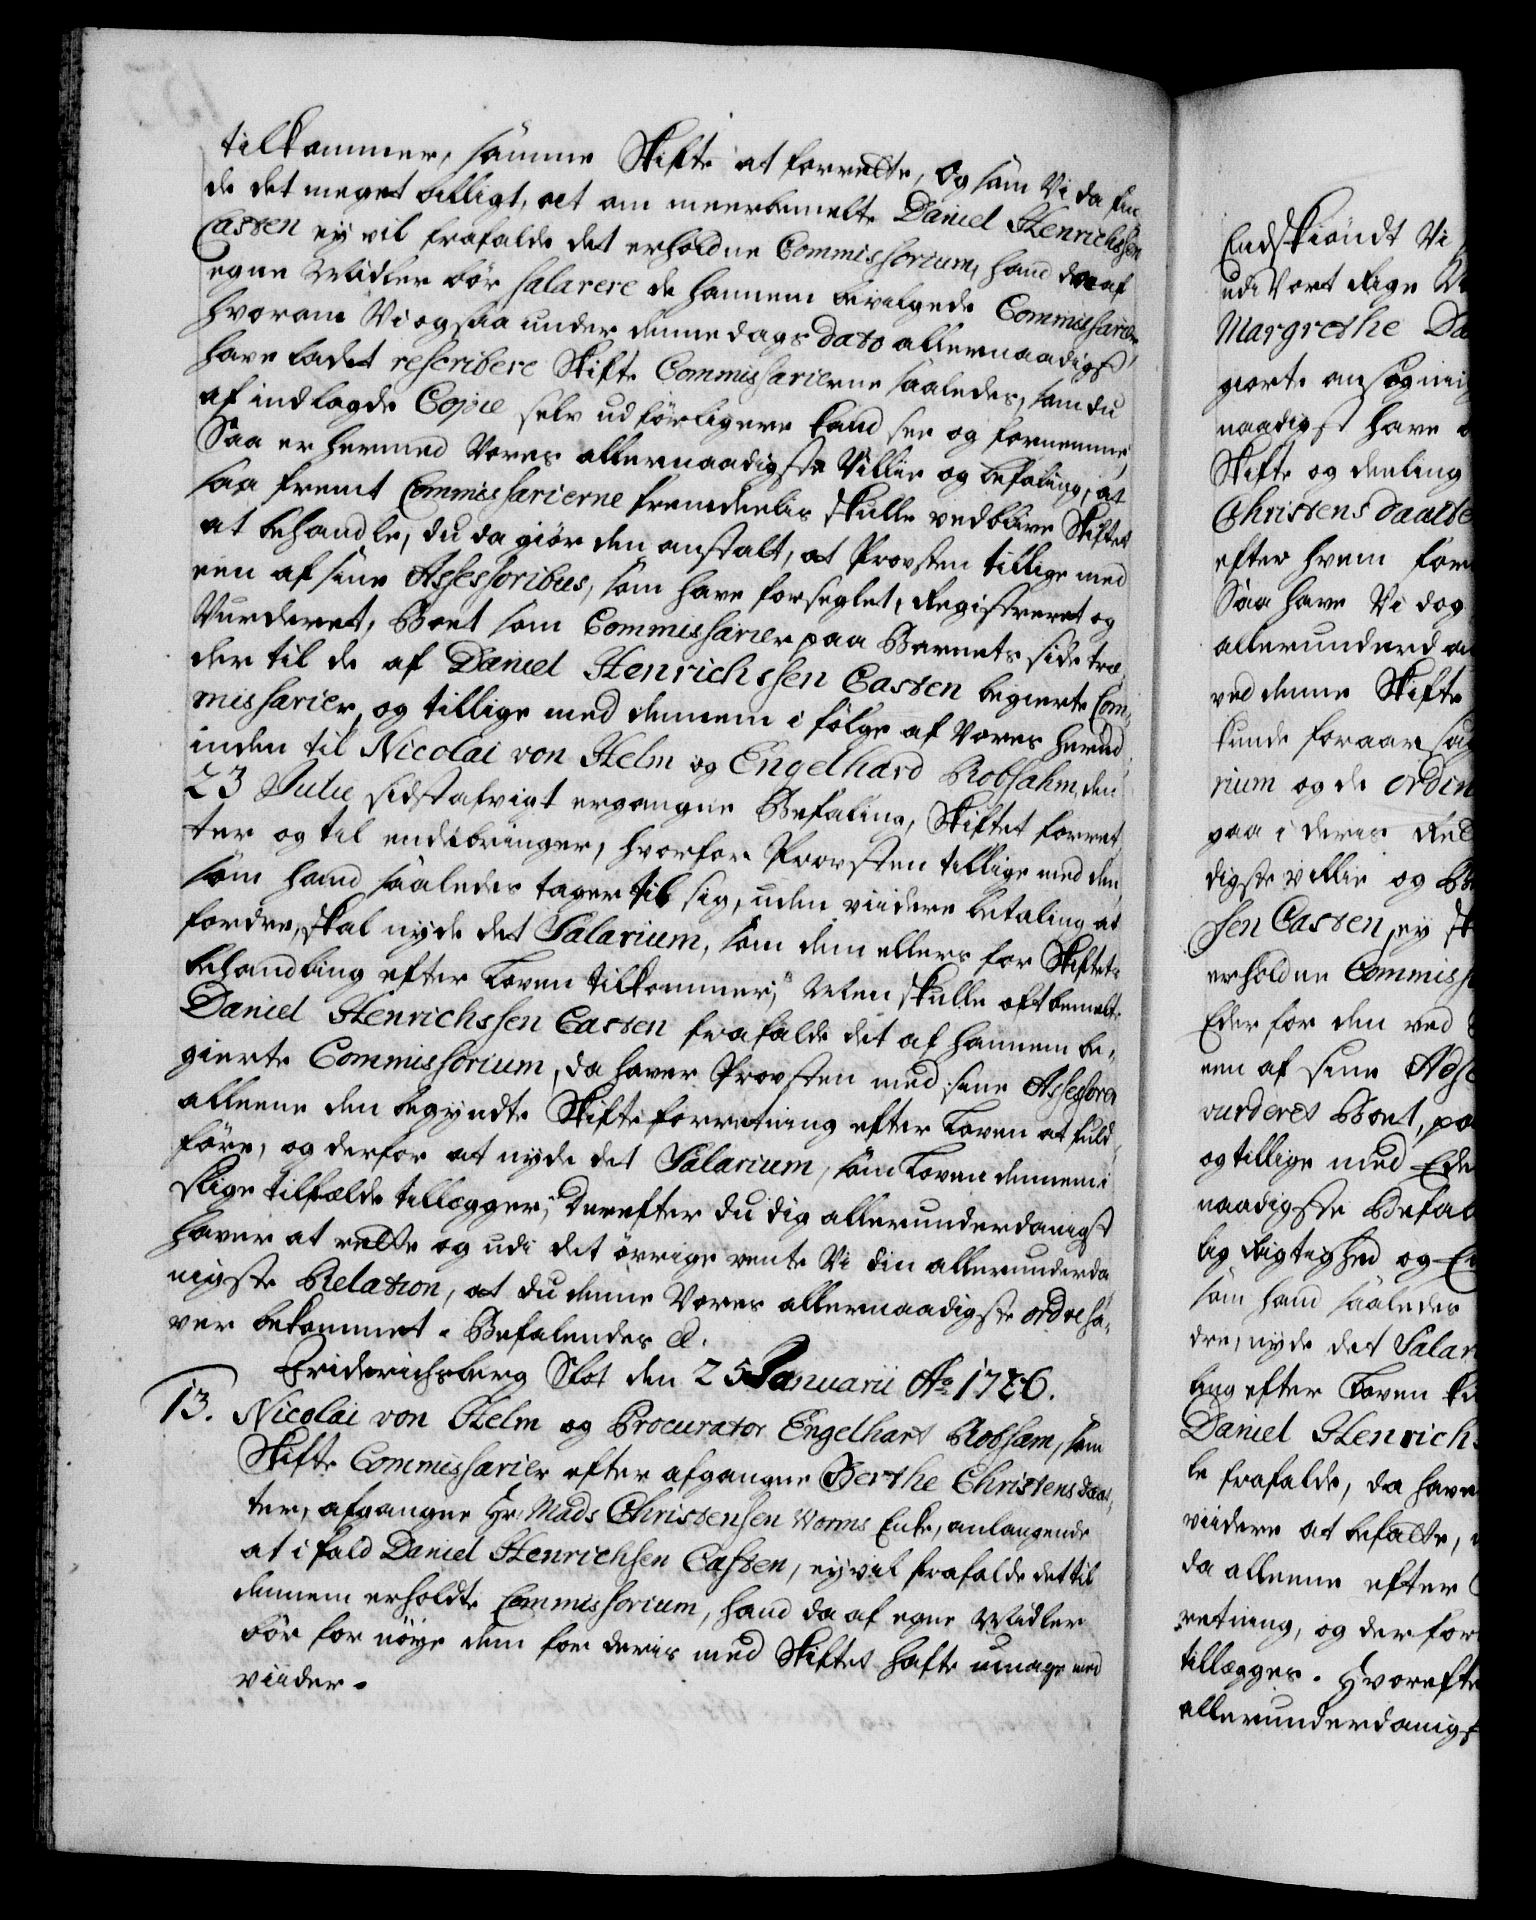 tilkommer, samme Skifte at forrette, og som Vi da fin
de det meget billigt, at om meerbemelte Daniel Henrichssen
Casten ey vil frafalde det erholdne Commissorium, hand da af
egne Midler bör salarere de hannem bevilgede Commissarier
hvorom Vi ogsaa under denne dags dato allernaadigst
have ladet rescribere Skifte Commissarierne saaledes, som du
af indlagde Copie selv udförligere kand see og fornemme,
Saa er hermed Vores allernaadigste Villie og befaling, at
saa fremt Commissarierne fremdeelis skulle vedblive Skiftet
at behandle, du da giör den anstalt, at Provsten tillige med
een af sine Assessoribus, som have forseglet, Registreret og
Vurderet, Boet som Commissarier paa Barnets side træ
der til de af Daniel Henrichssen Casten begierte Com¬
missarier, og tillige med dennem i fölge af Vores herud
inden til Nicolai von Helm og Engelhard Robsahm, den
23 Julii sidstafvigt ergangne Befaling, Skiftet forret
ter og til endebringer, hvorfor Provsten tillige med den,
som hand saaledes tager til sig, uden viidere betaling at
fordre, skal nyde det Salarium, som dem ellers for Skiftets
behandling efter Loven tilkommer; Men skulle oftbemelte
Daniel Henrichssen Casten frafalde det af hannem be¬
gierte Commissorium, da haver Provsten med sine Assessorer
alleene den begyndte Skifte forretning efter Loven at fuld
före, og derfor at nyde det Salarium, som Loven dennem i
slige tilfælde tillegger; Derefter du dig allerunderdanigst
haver at rette og udi det övrige vente Vi din allerunderda
nigste Relation, at du denne Vores allernaadigste ordre ha¬
ver bekommet. Befalendes &.
Friderichsberg Slot den 25 Januarii Ao 1726.
13. Nicolai von Helm og Procurator Engelhart Robsam, som
Skifte Commissarier efter afgangne Berthe Christensdaat¬
ter, afgangne Hr. Mads Christensen Worms Enke, anlangende
at i fald Daniel Henrichsen Casten, ey vil frafalde det til
dennem erholdte Commissorium, hand da af egne Midler
bör for nöye dem for deris med Skiftet hafte umage med
viider.

Endskiöndt Vi
udi Vort Rige
Margrethe Da
giorte ansögning
naadigst have
Skifte og deeling
Christens daatter
efter hvem for
Saa have Vi dog
allerunderda
ved denne Skifte
kunde foraarsag
rium og de ordin
paa i deris
digste villie og Be
sen Casten, ey sk
erholdne Commiss
Eder for den ved
een af sine Asse
vurderet Boet, pa
og tillige med Ede
naadigste Befal
lig Rigtighed og
som hand saaledes
dre, nyde det Salar
ling efter Loven
Daniel Henrichs
le frafalde, da have
viidere at befatte,
da alleene efter
retning, og derfor
tillegges. Hvorefte
allerunderdanigst